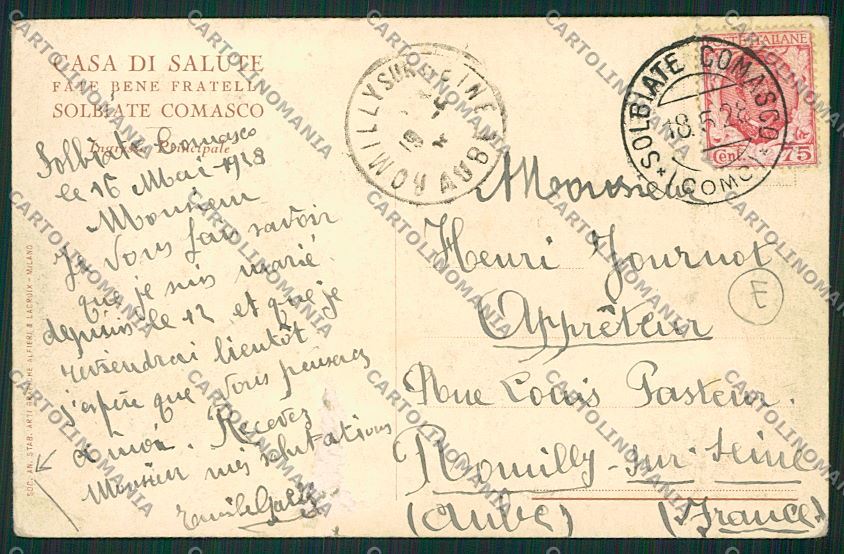 CASA DI SALUTE
FATE BENE FRATELLI
SOLBIATE COMASCO
Ingresso Principale
Solbiate Comasco
le 16 Mai 1928
Monsieur
Je vous fais savoir
que je suis marié
depuis le 12 et que je
reviendrai bientôt
j'espère que vous penserez
à moi. Recevez
Monsieur mes salutations
Emile Gally
SOC. AN. STAB. ARTI GRAFICHE ALFIERI & LACROIX - MILANO
ROMILLY SUR SEINE
AUBE
SOLBIATE COMASCO
18.5.28
(COMO)
POSTE ITALIANE
Cent. 75
Monsieur
Henri Journot
Apprêteur
Rue Louis Pasteur.
Romilly-sur-Seine
(Aube) (France)
E
CARTOLINOMANIA